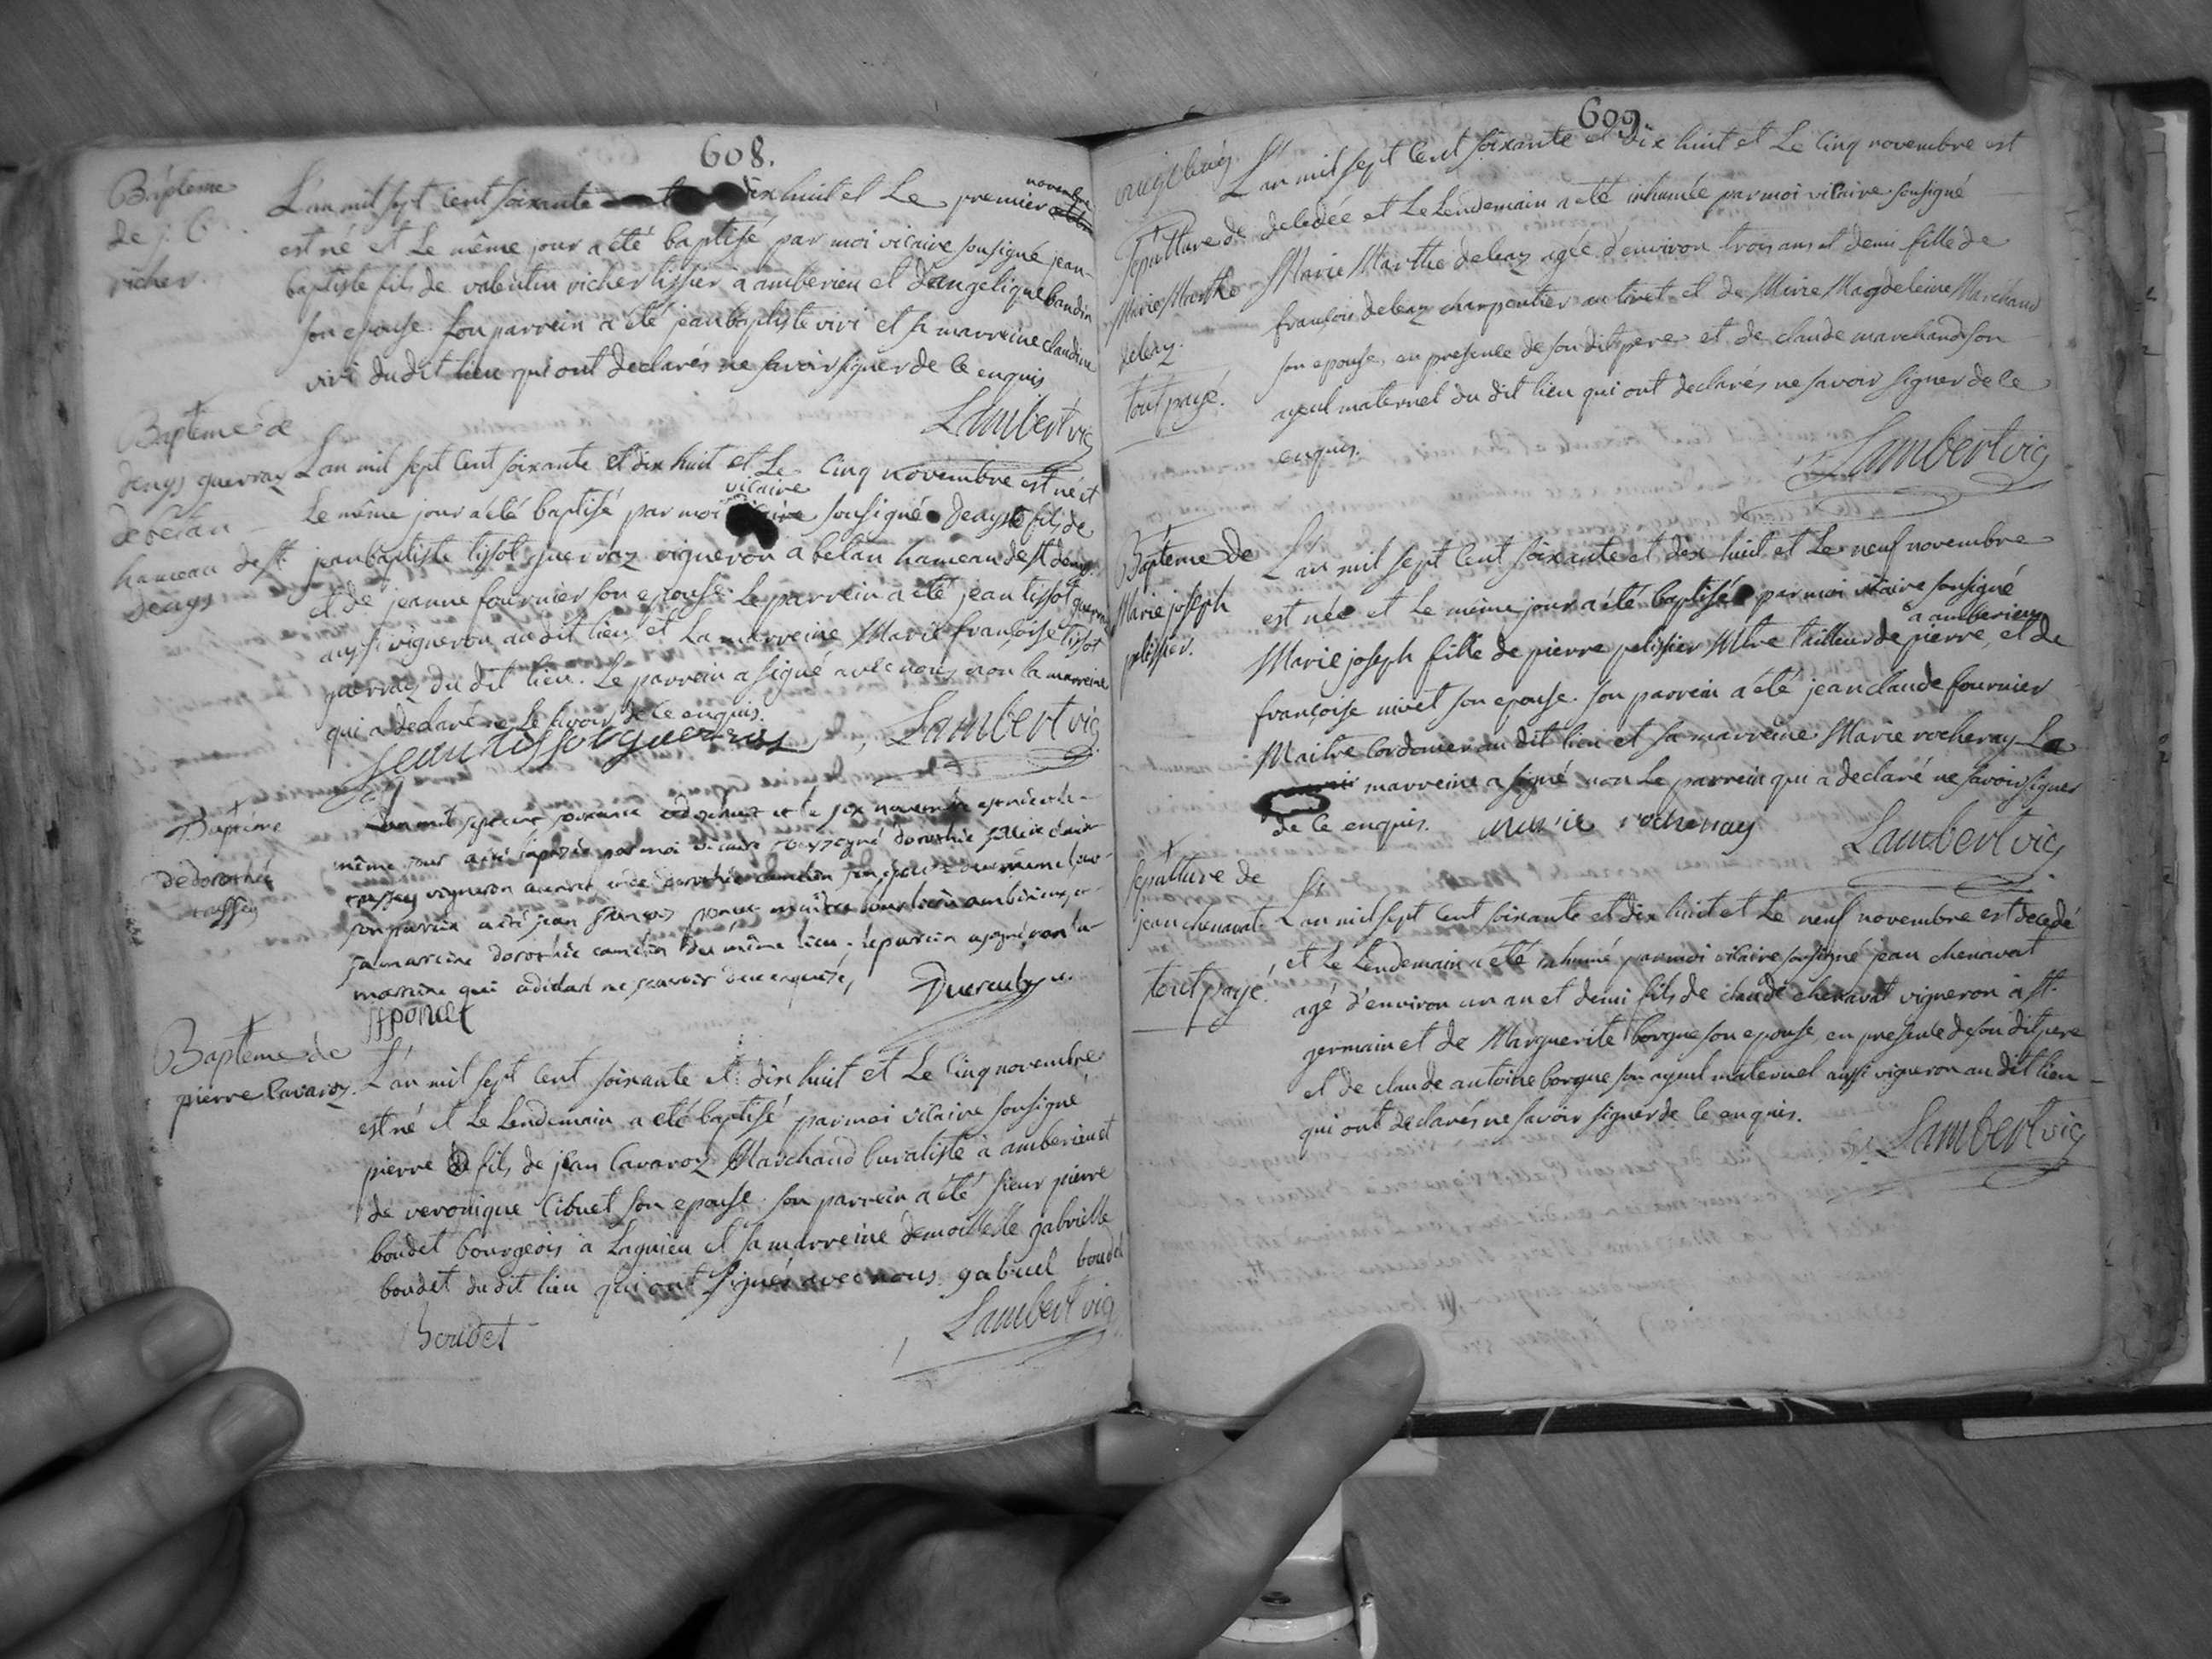 608.
Bapteme
de j. B.
richer.
L'an mil sept cent soixante dix huit et Le premier novembre
est né et Le même jour a été baptisé par moi vicaire sousigné jean-
baptiste fils de valentin richer tissier a amberieu et d'angelique baudin
son epouse. son parrein a été jean baptiste vivi et sa marreine claudine
vivi du dit lieu qui ont declarés ne savoir signer de ce enquis
Lambert vic
Bapteme de
denys guerraz
de bélan
hameau de st.
denys
L'an mil sept cent soixante et dix huit et Le cinq novembre est né et
vicaire
Le même jour a été baptisé par moi sousigné denys fils de
jean baptiste tissot guerraz vigneron a belan hameau de st denys
et de jeanne fournier son epouse. Le parrein a été jean tissot guerraz
aussi vigneron au dit lieu et La marreine Marie françoise tissot
guerraz du dit lieu. Le parrein a signé avec nous non la marreine
qui a declaré ne Le savoir de ce enquis.
jean tissot guerras Lambert vic
Baptême
de dorothée
tassey
L'an mil sept cent soixante et dix huit et le six novembre est née et le
même jour a été baptisée par moi vicaire soussigné dorothée fille d'
tassey vigneron au et de dorothée son épouse du même lieu
son parrein a été jean françois poncet maître a amberieux, et
sa marreine dorothée du même lieu. le parrein a signé non la
marreine qui a déclaré ne scavoir de ce enquise,
jf poncet
Bapteme de
pierre Cavaroz.
L'an mil sept cent soixante et dix huit et Le cinq novembre
est né et Le Lendemain a eté baptisé par moi vicaire sousigné
pierre fils de jean Cavaroz Marchand buraliste a amberieu et
de veronique Cibuet son epouse. son parrein a été sieur pierre
boudet bourgeois a Lagnieu et sa marreine demoiselle gabrielle
boudet du dit lieu qui ont signés avec nous. gabriel boudet
Boudet Lambert vic
609.
L'an mil sept cent soixante et dix huit et Le cinq novembre est
Sepulture de
Marie Marthe
deleaz.
tout payé.
decedée et Le Lendemain a eté inhumée par moi vicaire sousigné
Marie Marthe deleaz agée d'environ trois ans et demi fille de
françois deleaz charpentier au tiret et de Marie Magdeleine Marchand
son epouse, en presence de son dit pere et de claude marchand son
ayeul maternel du dit lieu qui ont declarés ne savoir signer de ce
enquis.
Lambert vic
Bapteme de
Marie joseph
pelissier.
L'an mil sept cent soixante et dix huit et Le neuf novembre
est née et Le même jour a été baptisé par moi vicaire sousigné
a amberieu
Marie joseph fille de pierre pelissier Mtre tailleur de pierre, et de
françoise nivet son epouse. son parrein a été jean claude fournier
Maitre Cordonier au dit lieu et sa marreine Marie rocheray La
marreine a signé non Le parrein qui a declaré ne savoir signer
de ce enquis. Marie rocheray
Lambert vic
Sepulture de
jean chenavat.
tout payé.
L'an mil sept cent soixante et dix huit et Le neuf novembre est decedé
et Le Lendemain a eté inhumé par moi vicaire sousigné jean chenavat
agé d'environ un an et demi fils de claude chenavat vigneron a st.
germain et de Marguerite borgue son epouse, en presence de son dit pere
et de claude antoine borgue son ayeul maternel aussi vigneron au dit lieu
qui ont declarés ne savoir signer de ce enquis.
Lambert vic